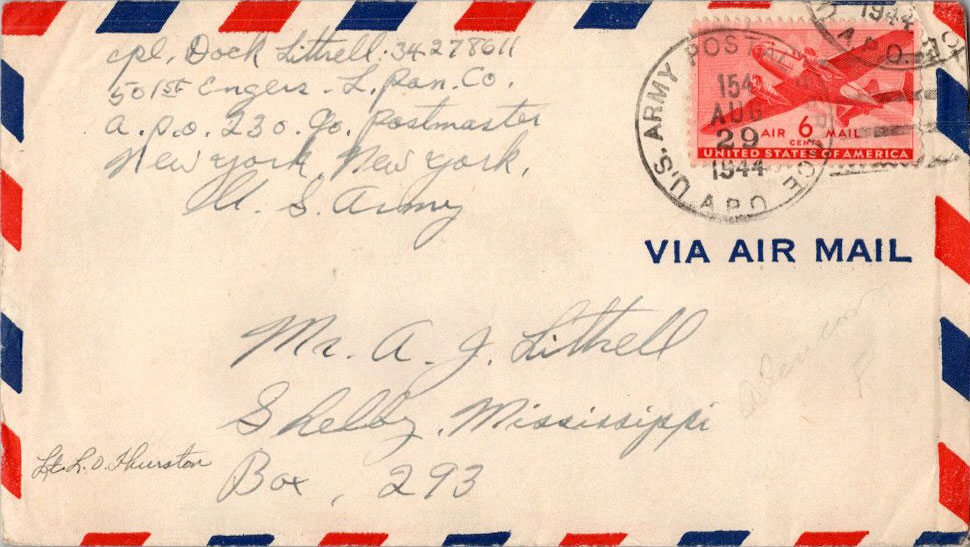 cpl. Dock Littrell. 34278611
501st Engers. L. Pon. Co.
a.p.o. 230. Go. Postmaster
New York, New York,
U. S. Army
U.S. ARMY POSTAL SERVICE
154
AUG
29
1944
A.P.O.
1944
A.P.O.
AIR 6 MAIL
CENTS
UNITED STATES OF AMERICA
VIA AIR MAIL
Mr. A. J. Littrell
Shelby, Mississippi
Box, 293
Lt. L. O. Thurston